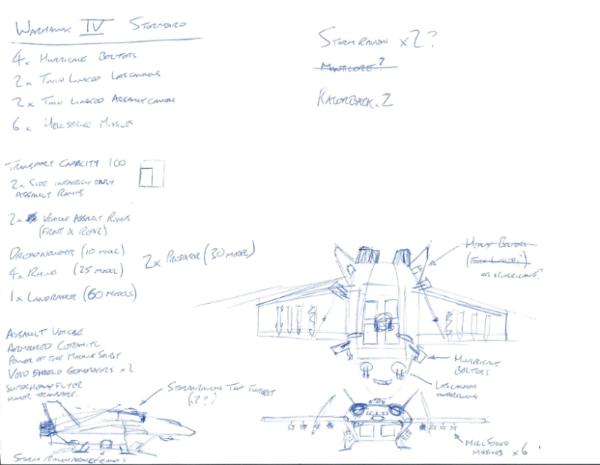 Warhawk IV Stormbird
4x Hurricane Bolters
2x Twin Linked Lascannons
2x Twin Linked Assault Cannon
6x Hellstrike Missiles
Transport Capacity 100
2x Side Infantry Only
Assault Ramps
2x Vehicle Assault Ramps
(Front & Rear)
Dreadnought (10 model)
4x Rhino (25 model)
2x Predator (30 model)
1x Landraider (60 models)
Assault Vehicle
Armoured Ceramite
Power of the Machine Spirit
Void Shield Generators x2
Super Heavy Flyer
Transport
Stormraven x2?
Manticore?
Razorback x2
Heavy Bolters
or Hurricane
Hurricane
Bolters
Lascannon
Hellstrike
Missiles x6
Stormraven Top Turret
(x2?)
Storm Raven